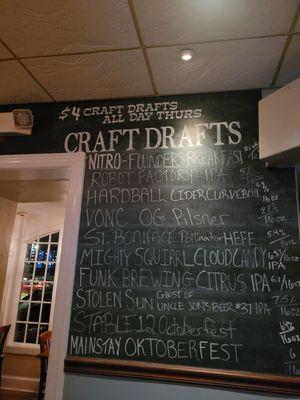 $4 CRAFT DRAFTS
ALL DAY THURS.
CRAFT DRAFTS
NITRO-FOUNDERS BREAKFAST
ROBOT FACTORY IPA
HARDBALL CIDER CURVEBALL
VONC OG Pilsner
ST. BONIFACE Pollinator HEFE 5.4%
MIGHTY SQUIRREL CLOUD CANDY IPA
FUNK BREWING CITRUS IPA
STOLEN SUN GHOST OF UNCLE JON'S BEER #37 IPA
STABLE 12 Octoberfest
MAINSTAY OKTOBERFEST